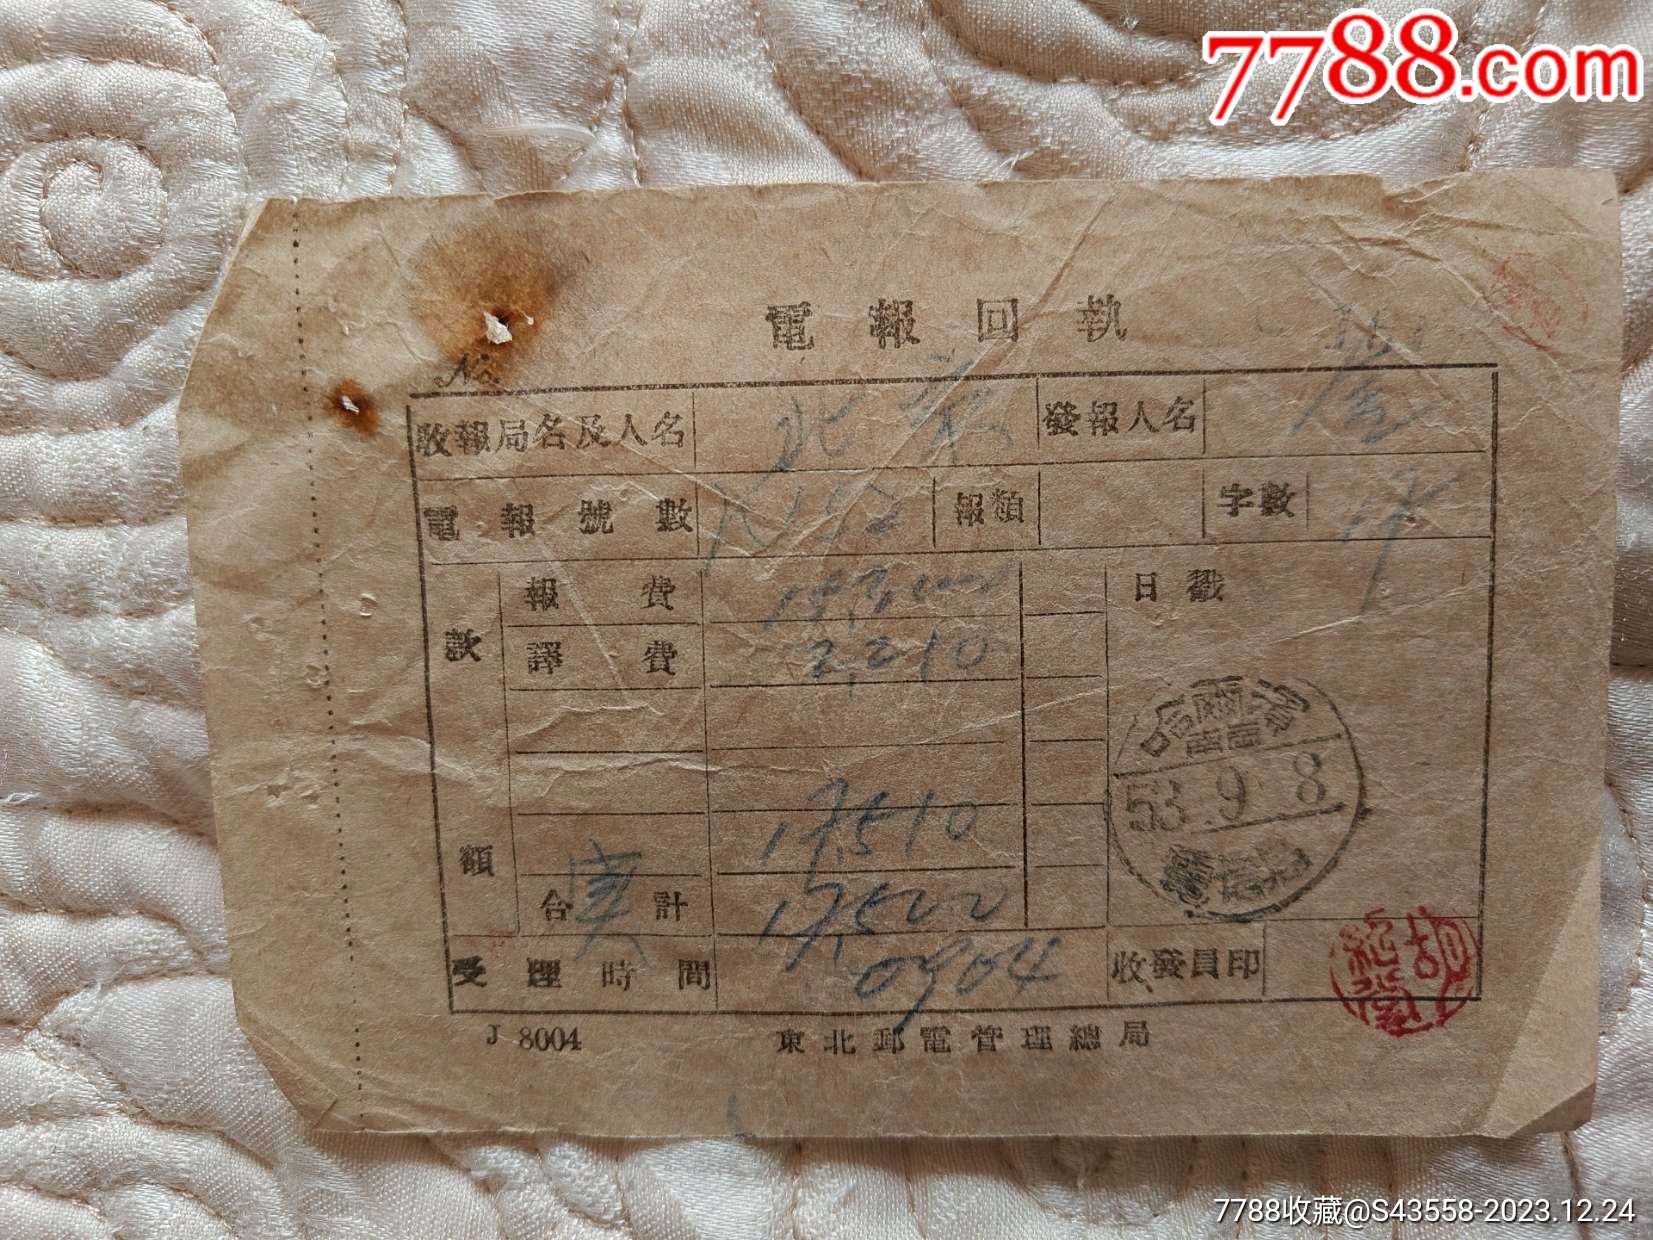 7788.com
電報回執
No.
收報局名及人名 北京 發報人名
電報號數 報類 字數
款額 報費 日戳
譯費 2,210
哈爾濱
53.9.8
17,510
合計 17,500
受理時間 0904 收發員印
J 8004 東北郵電管理總局
7788收藏@S43558-2023.12.24